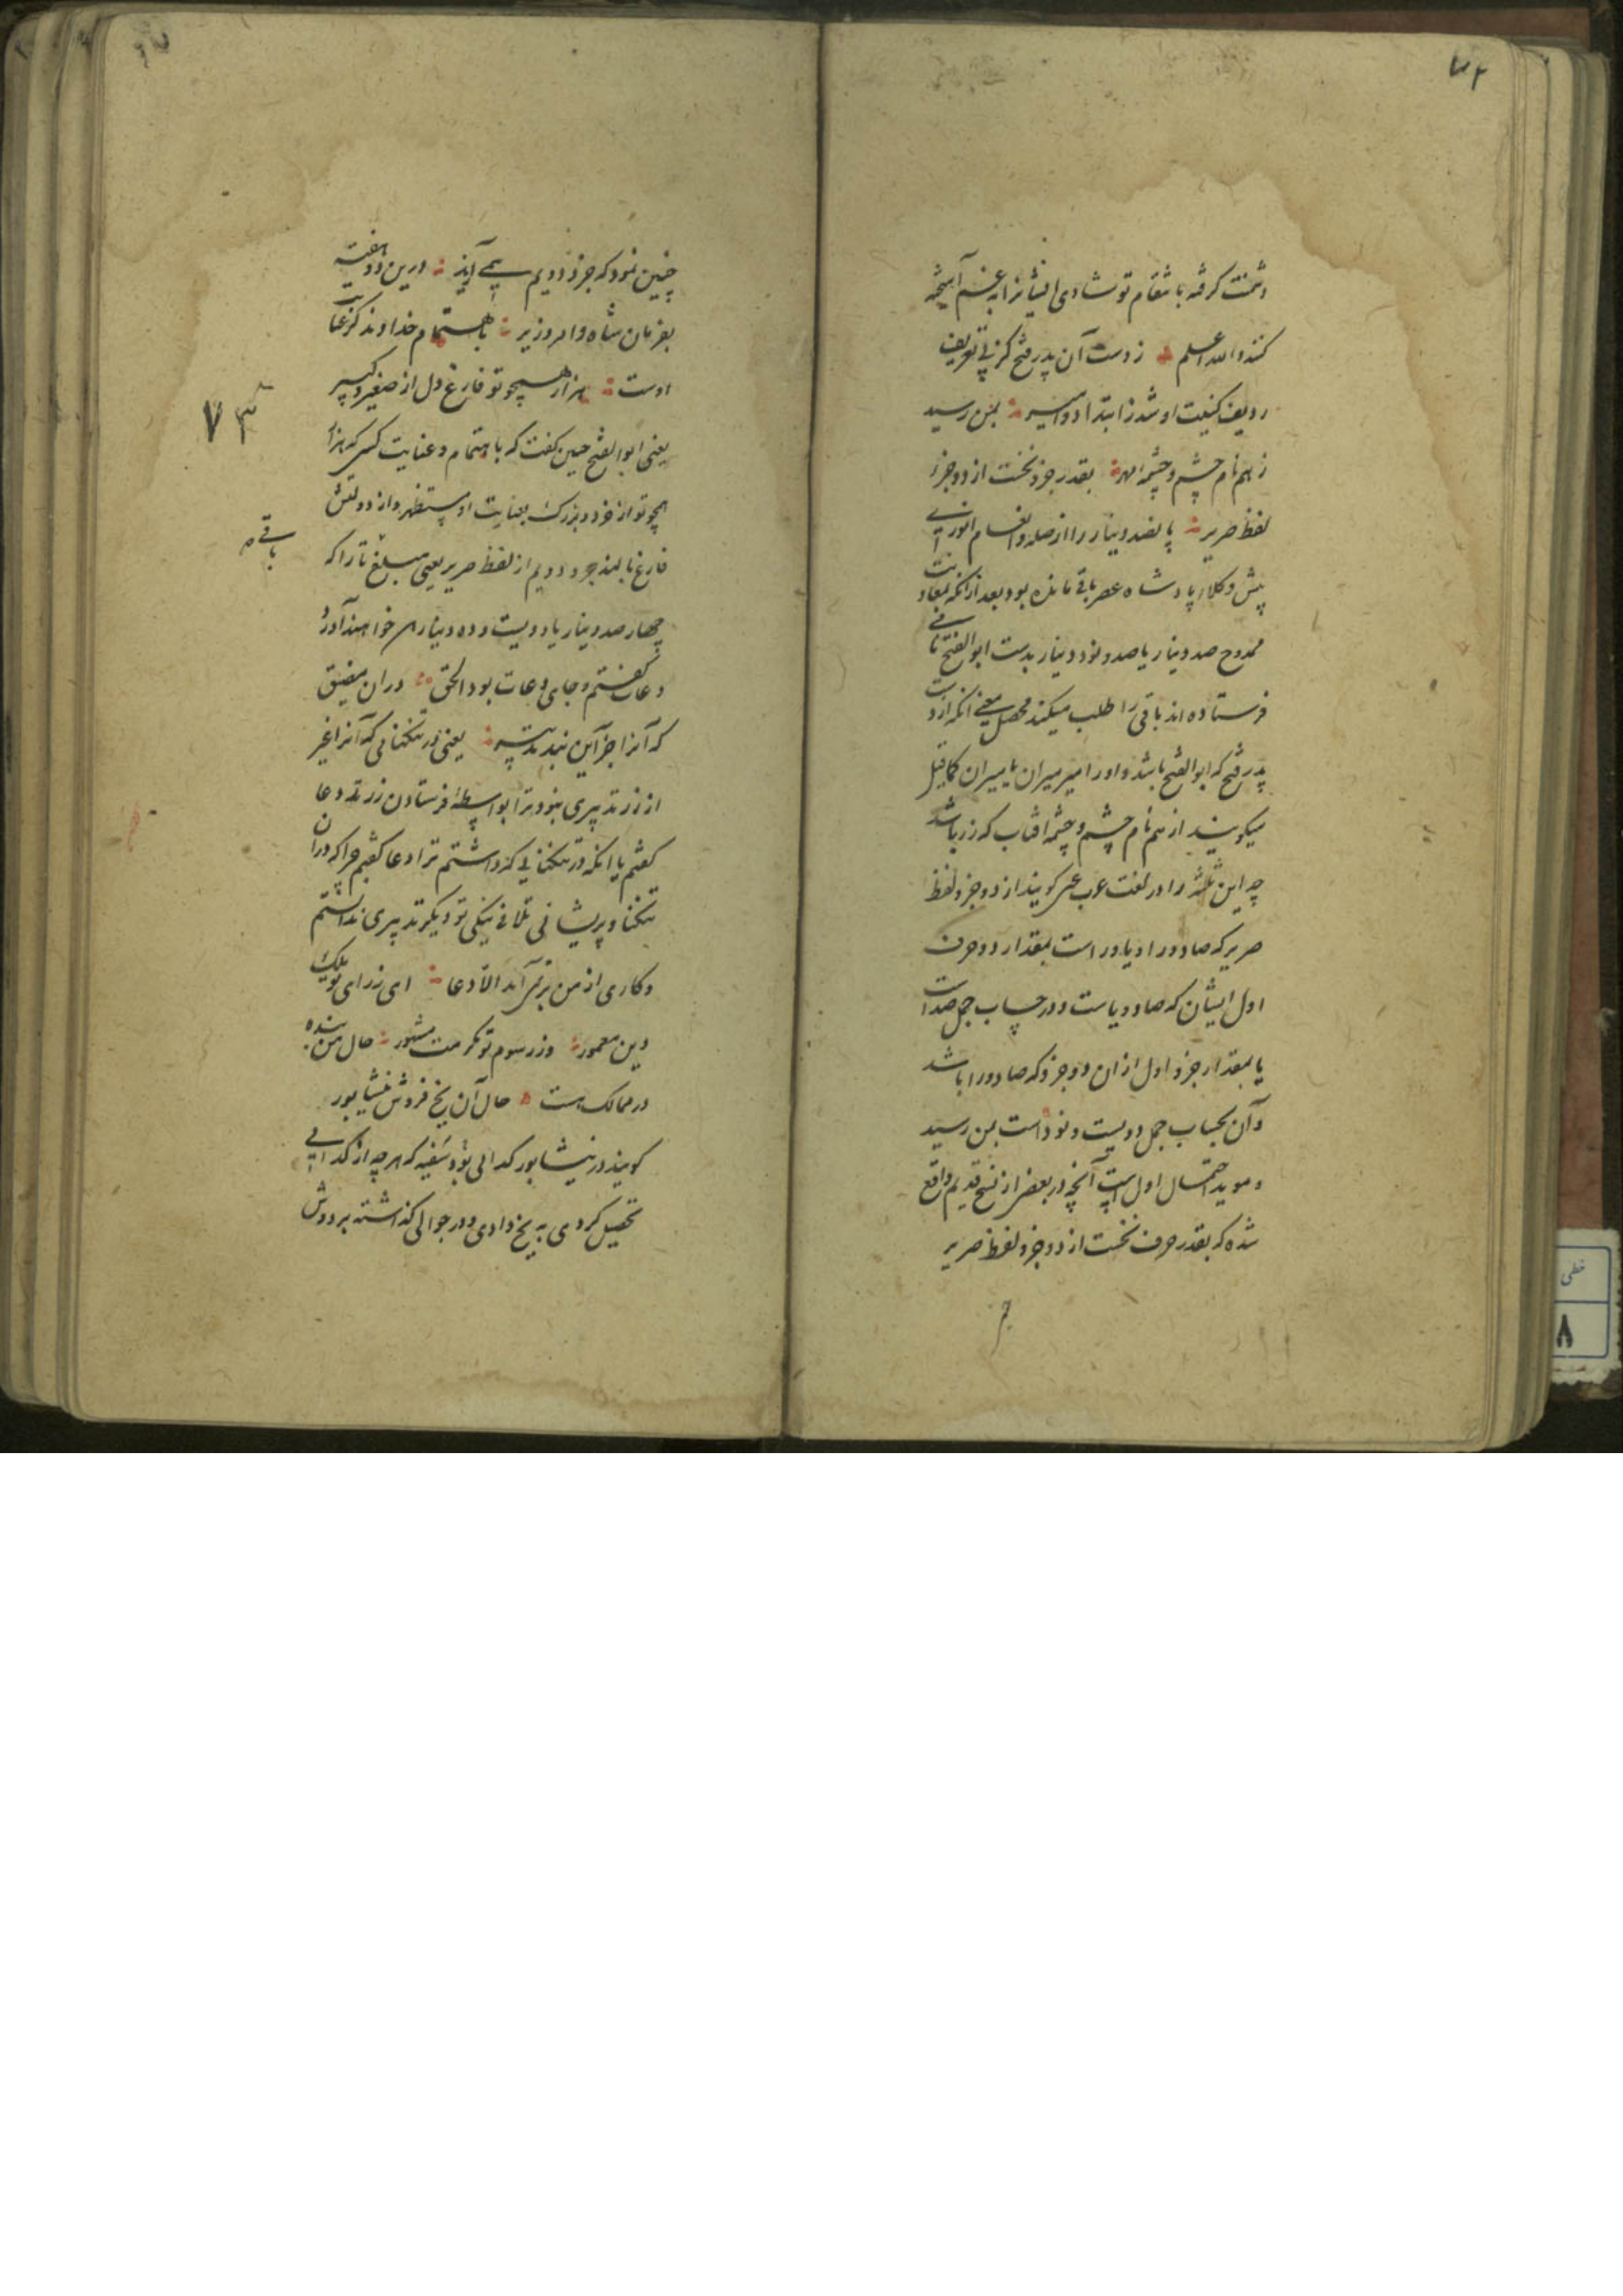 دشمنت گرفته بانتقام تو شادی ایشانرا به غم آمیخته
کند والله اعلم ز دست آن پدر فتح کز پی تعریف
ردیف کنیت او شد ز ابتدا دو امیر بمن رسید
ز هم نام چشم و چشمه مهر بقدر جزو نخست از دو جزو
لفظ صریر پانصد دینار را از صله و انعام انوری
پیش وکلاء پادشاه عصر باقی مانده بود بعد از آنکه
ممدوح صد دینار یا صد و نود دینار بدست ابوالفتح
فرستاده اند باقی را طلب میکند محصل معنی انکه از دست
پدر فتح که ابوالفتح باشد و اورا امیر میران یا میران کما قیل
میگویند از هم نام چشم و چشمه افتاب که زر باشد
چه این ثلثه را در لغت عرب عین گویند از دو جزو لفظ
صریر که صاد و را و یا و را است بمقدار دو حرف
اول ایشان که صاد و یاست و در حساب جمل صد است
یا بمقدار جزو اول از ان دو جزو که صاد و را باشد
و آن بحساب جمل دویست و نود است بمن رسید
و موید احتمال اول است آنچه در بعضی از نسخ قدیم واقع
شده که بقدر حرف نخست از دو جزو لفظ صریر
چنین نمود که جزو دویم همی آید درین دو هفته
بفرمان شاه و امر وزیر باهتمام خداوند کز عنایت
اوست هزار همچو تو فارغ دل از صغیر و کبیر
یعنی ابوالفتح چنین گفت که باهتمام و عنایت کسی که هزار
همچو تو از خرد و بزرگ بعنایت او مستظهر و از دولتش
فارغ بالند جزو دویم از لفظ صریر یعنی مبلغ تا را که
چهارصد دینار یا دویست و ده دینار هم خواهند آورد
دعات گفتم و جای دعات بود الحق دران مضیق
که آنرا جز آین نبد تدبیر یعنی در تنگنائی که آنرا غیر
از زر تدبیری نبود ترا بواسطه فرستادن زر دعا
گفتم یا انکه در تنگنائی که داشتم ترا دعا گفتم چرا که در ان
تنگنا و پریشانی تلافی نیکی تو دیگر تدبیری نداشتم
و کاری از من بر نمی آمد الا دعا ای ز رای تو ملک
و دین معمور وز رسوم تو مکرمت مشهور حال من بنده
در ممالک هست حال آن یخ فروش نیشابور
گویند در نیشابور گدائی بود سفیه که هر چه از گدائی
تحصیل کردی به یخ دادی و در جوالی گذاشته بر دوش
۷۳
باقی
خطی
۸